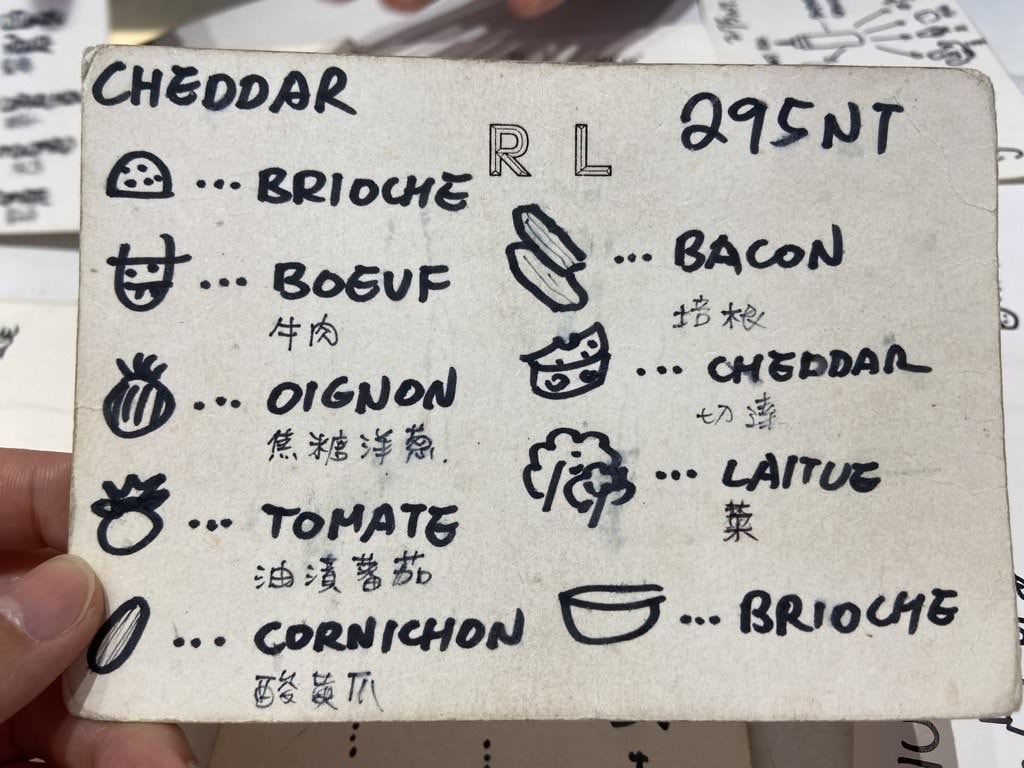 CHEDDAR
295NT
R L
... BRIOCHE
... BOEUF
牛肉
... OIGNON
焦糖洋蔥.
... TOMATE
油漬蕃茄
... CORNICHON
酸黃瓜
... BACON
培根
... CHEDDAR
切達
... LAITUE
菜
... BRIOCHE